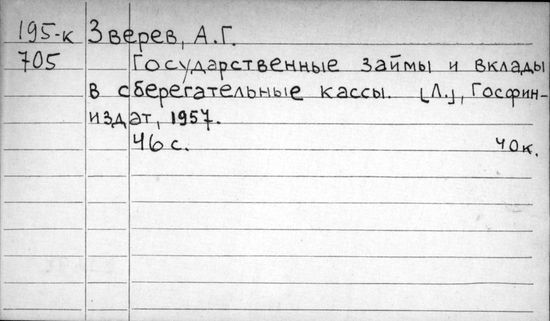 195-к Зверев, А.Г.
705 Государственные займы и вклады
в сберегательные кассы. [Л.], Госфин-
издат, 1957.
46 с. 40 к.